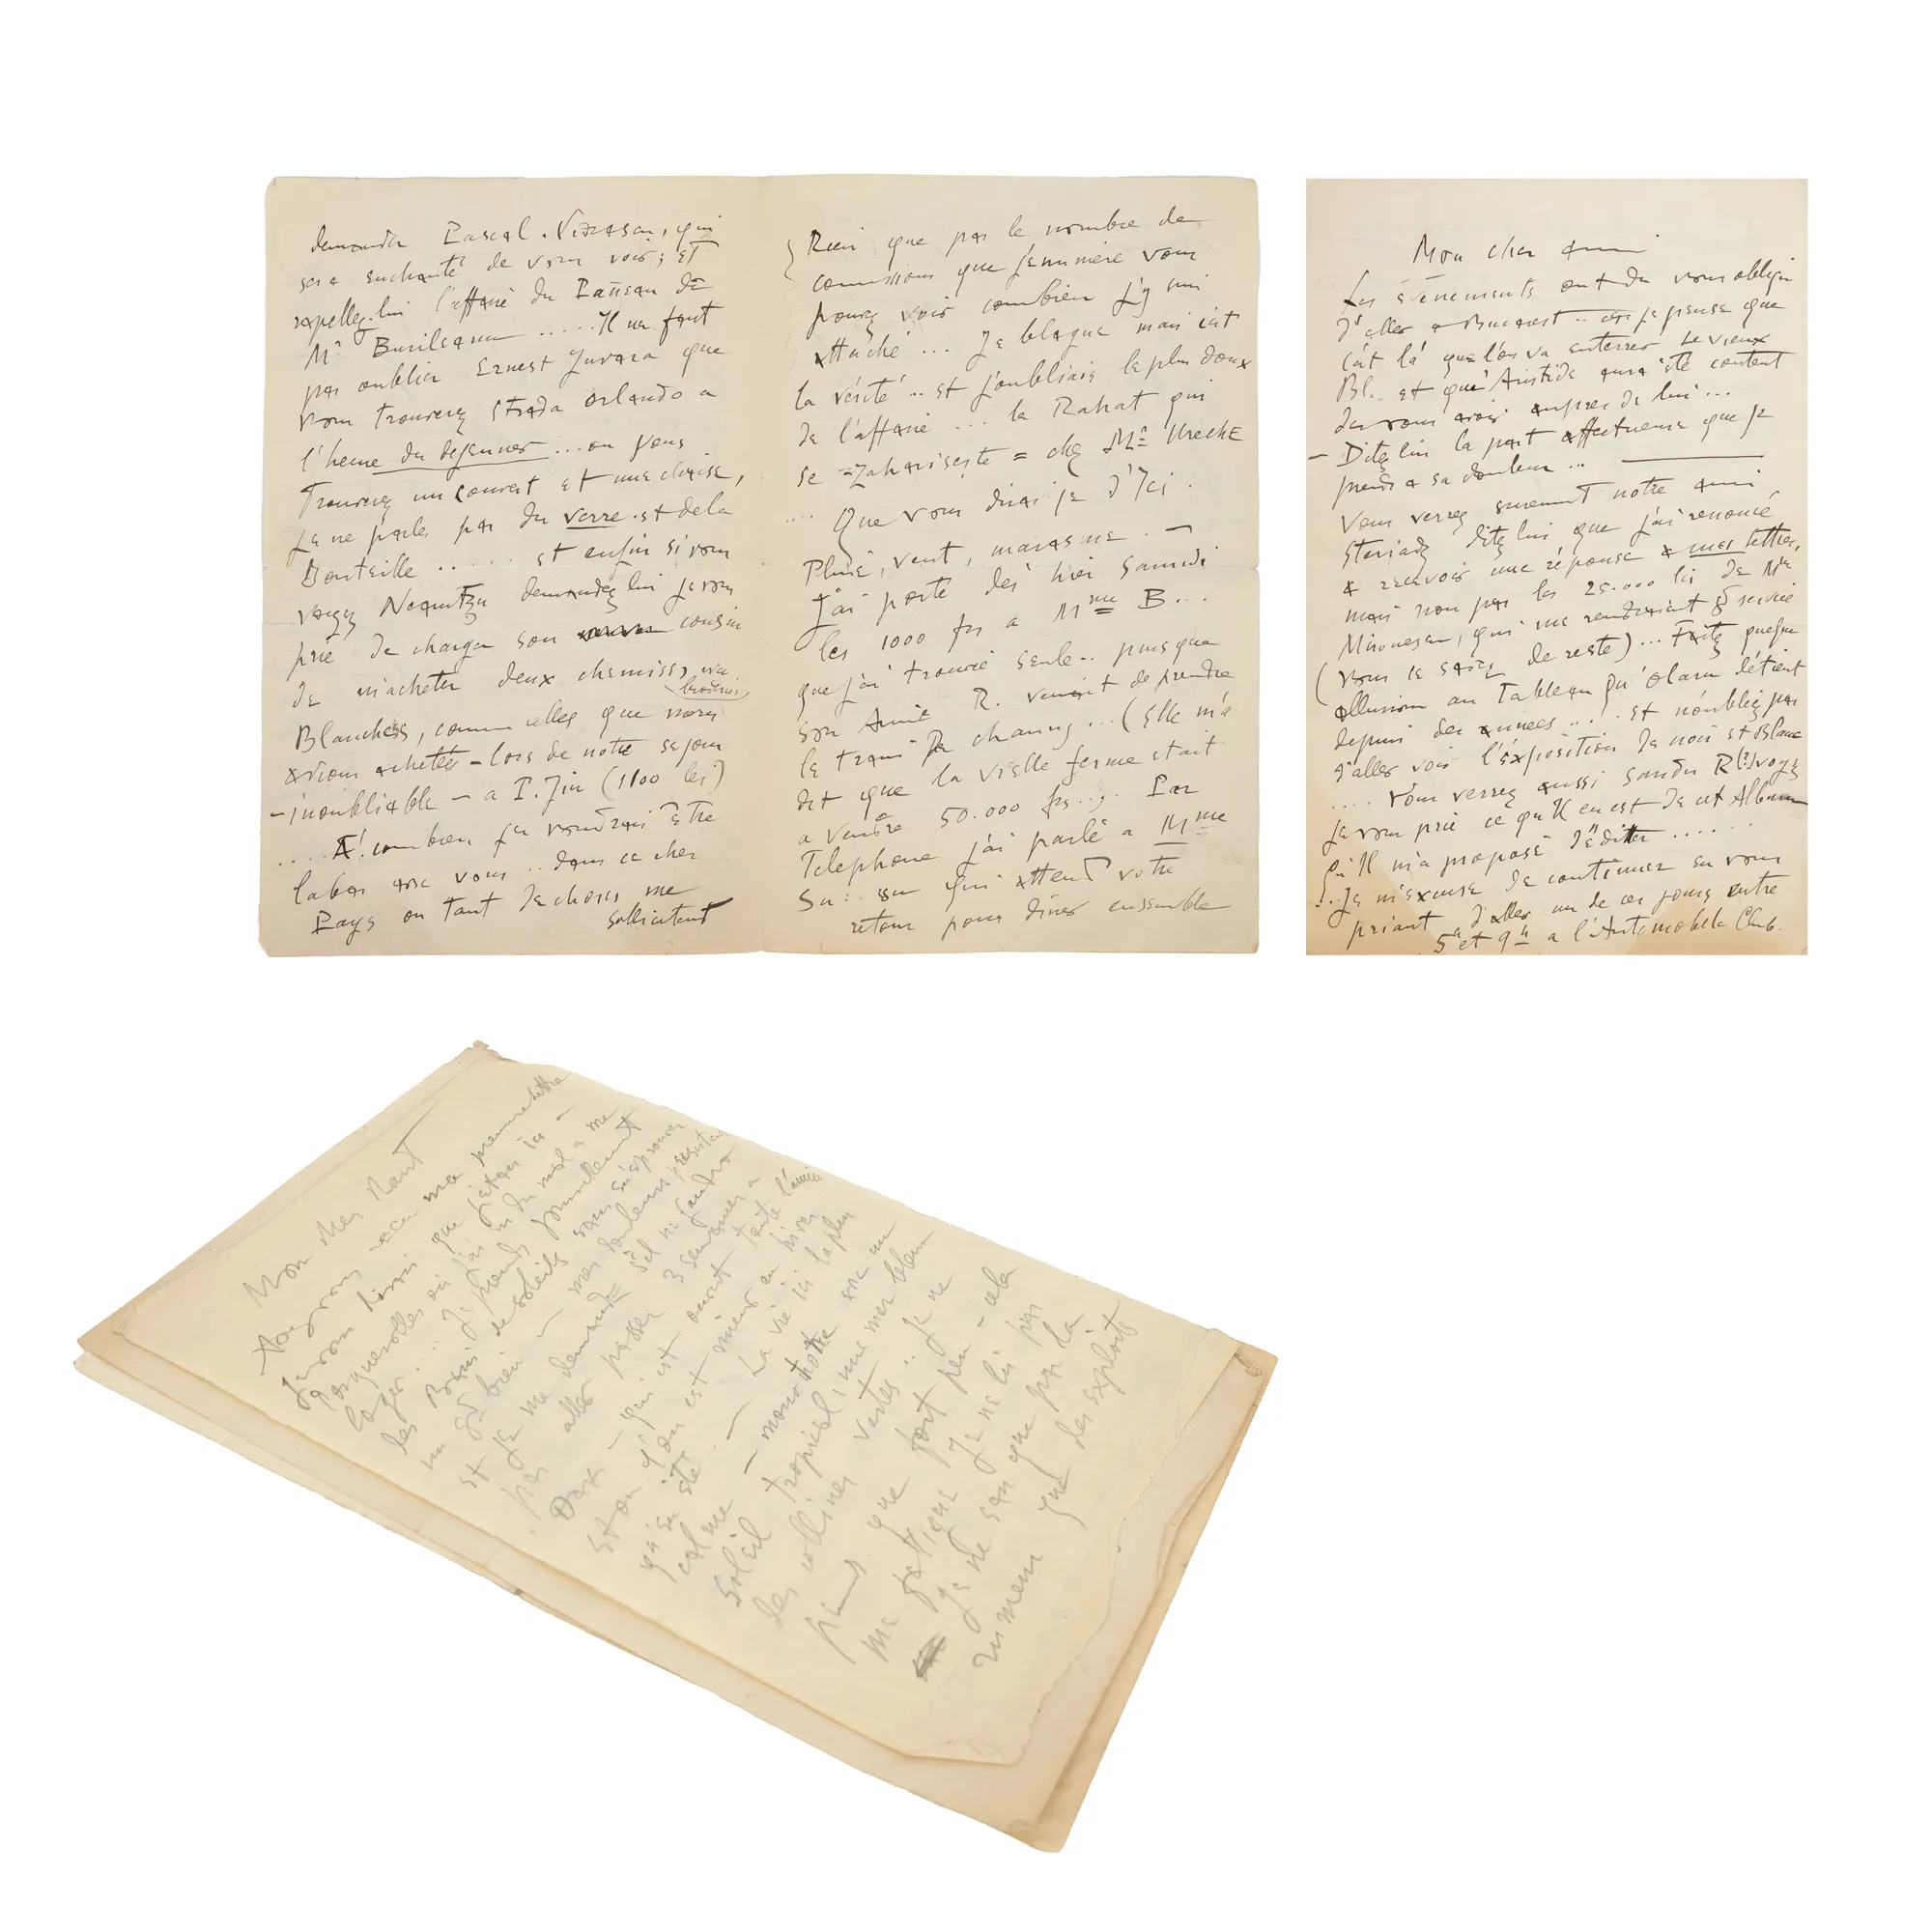 Mon cher ami
Les événements ont du vous obliger
d'aller a Bucarest .. et je pense que
c'est là que l'on va enterrer le vieux
Bl.. et qu'Aristide aura été content
de vous avoir aupres de lui ...
— Ditez lui la part affectueuse que je
prends a sa douleur ...
Vous verrez surement notre ami
Steriadi ditez lui que j'ai renoncé
a recevoir une réponse a mes lettres,
mais non pas les 25.000 lei de Mr
Mironesen, qui me rendraient gd service
(vous le savez de reste) ... Faitez quelque
allusion au Tableau qu'Olaru détient
depuis des années .... et n'oubliez pas
d'aller voir l'exposition de noir et Blanc
.... Vous verrez aussi Sandu R(?) voyez
je vous prie ce qu'il en est de cet Album
qu'Il m'a proposé d'éditer ......
... Je m'excuse de continuer en vous
priant d'aller un de ces jours entre
5h et 9h a l'Automobile Club.
demander Pascal , qui
sera enchanté de vous voir ; et
rapellez-lui l'affaire du Panneau de
Mr Burileanu ..... Il ne faut
pas oublier Ernest Juvara que
vous trouverez Strada Orlando a
l'heure du dejeuner ... ou vous
trouverez un couvert et une chaise,
je ne parle pas du verre et de la
Bouteille ..... et enfin si vous
voyez Negrutzu demandez lui je vous
prie de charger son cousin
de m'acheter deux chemises,
Blanches, comme celles que nous
avions achetées - lors de notre sejour
- inoubliable - a T. Jiu (1100 lei)
.... A! combien je voudrais être
labas avec vous .. dans ce cher
Pays ou tant de choses me
sollicitent
Rien que par le nombre de
comissions que j'enumère vous
pourez voir combien j'y suis
attaché ... Je blague mais c'est
la vérité .. et j'oubliais le plus doux
de l'affaire ... le Rahat qui
se Zahariseste = chez Mr Ureche
.... Que vous dirai je d'Ici .
Pluie, vent, marasme . —
J'ai porté des hier Samedi
les 1000 frs a Mme B...
que j'ai trouvé seule .. puisque
son Amie R. venait de prendre
le train ... (Elle m'a
dit que la vielle ferme etait
a vendre 50.000 frs ... Par
Telephone j'ai parlé a Mme
Su.. qui attend votre
retour pour diner ensemble
Mon cher
Avez vous recu ma premiere lettre
je vous disais que j'etais ici a
Porquerolles où j'ai eu du mal a me
loger .... Je prends journellement
les Bains de soleils sans eprouver
un gd bien — mes douleurs
et je me demande s'il ne faudra
pas aller passer 3 semaines a
Dax — qui est ouvert toute l'année
et ou l'on est mieux en hiver
qu'en été. — La vie ici la plus
calme — monotone avec un
soleil tropical, une mer bleue
des collines vertes .. je ne
peins que fort peu — cela
me fatigue je ne lis pas
je ne sais que par la
rumeur que des exploits